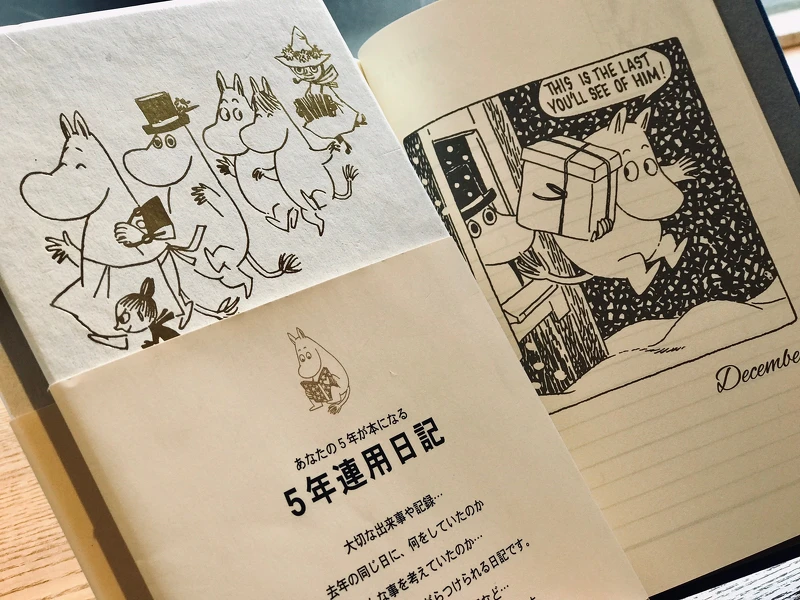 あなたの5年が本になる
5年連用日記
大切な出来事や記録…
去年の同じ日に、何をしていたのか
な事を考えていたのか…
つけられる日記です。
など…
THIS IS THE LAST
YOU'LL SEE OF HIM!